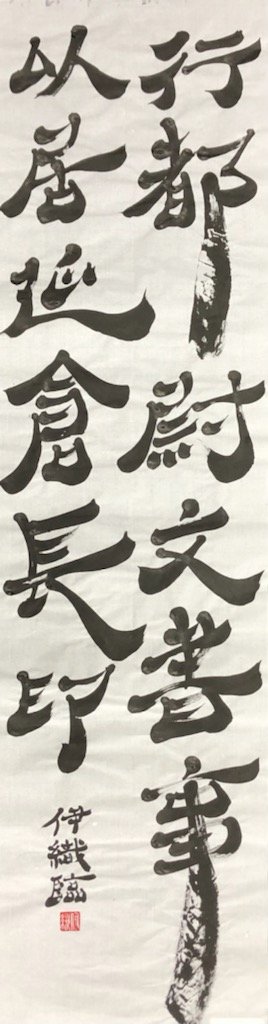 行都尉文書事
以居延倉長印
伊織臨